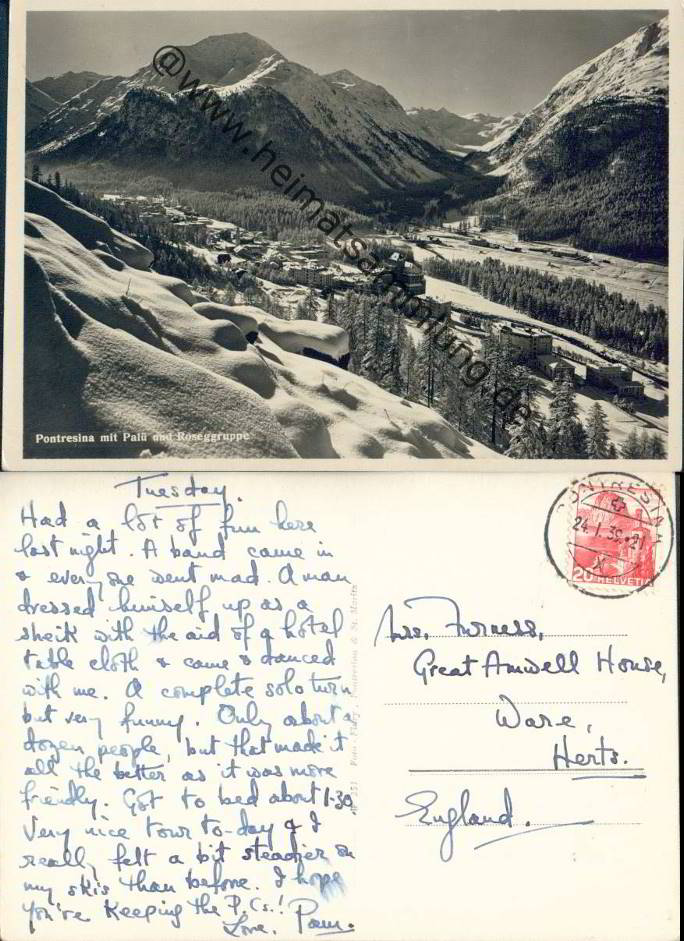 @www.heimatsammlung.de
Pontresina mit Palü und Roseggruppe
Tuesday.
Had a lot of fun here
last night. A band came in
& everyone went mad. A man
dressed himself up as a
sheik with the aid of a hotel
table cloth & came & danced
with me. A complete solo turn
but very funny. Only about a
dozen people, but that made it
all the better as it was more
friendly. Got to bed about 1.30
Very nice tour to-day & I
really felt a bit steadier on
my skis than before. I hope
you're keeping the P.Cs.!
Love, Pam.
251 Foto Pontresina & St. Moritz
PONTRESINA
24.I.39.-21
X
20 HELVETIA
Mrs. Furness,
Great Amwell House,
Ware,
Herts.
England.